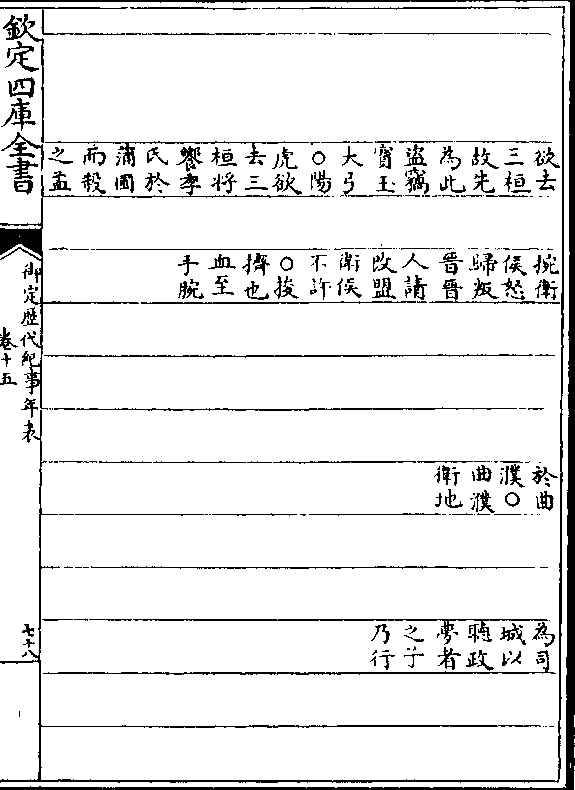 欲去
三桓
故先
為此
盜竊
寶玉
大弓
○陽
虎欲
去三
桓將
饗季
氏於
蒲圃
而殺
之孟
捥衛
侯怒
歸叛
晉晉
人請
改盟
衛侯
不許
○捘
擠也
血至
手腕
於曲
濮○
曲濮
衛地
為司
城以
聽政
夢者
之子
乃行
欽定四庫全書
御定歴代紀事年表
卷十五
七十八